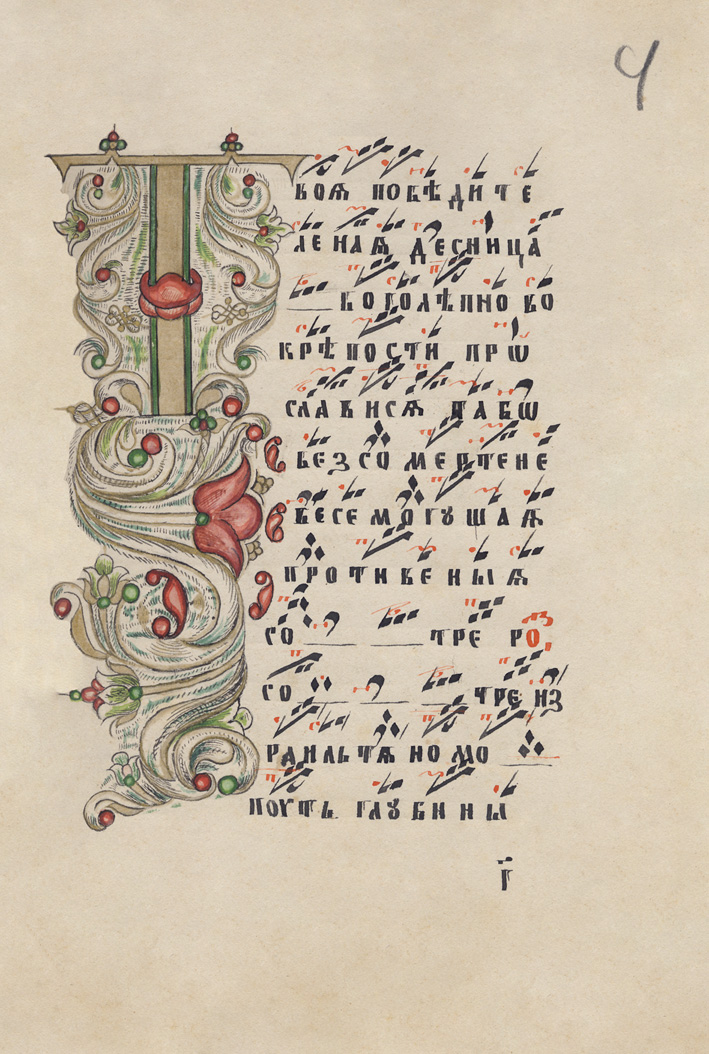 4
Твоѧ побѣдиче
ленаѧ десница
боголѣпно во
крѣпости прѡ
слависѧ табѡ
безсомертене
весемогꙋщаѧ
противеныѧ
со тре ро҃з
со тре из
раильтѧномо
поуть глꙋбины
г҃